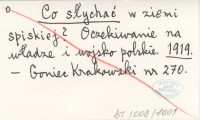 Co słychać w ziemi
spiskiej? Oczekiwanie na
władze i wojsko polskie. 1919.
– Goniec Krakowski nr 270.
BT/008/1001